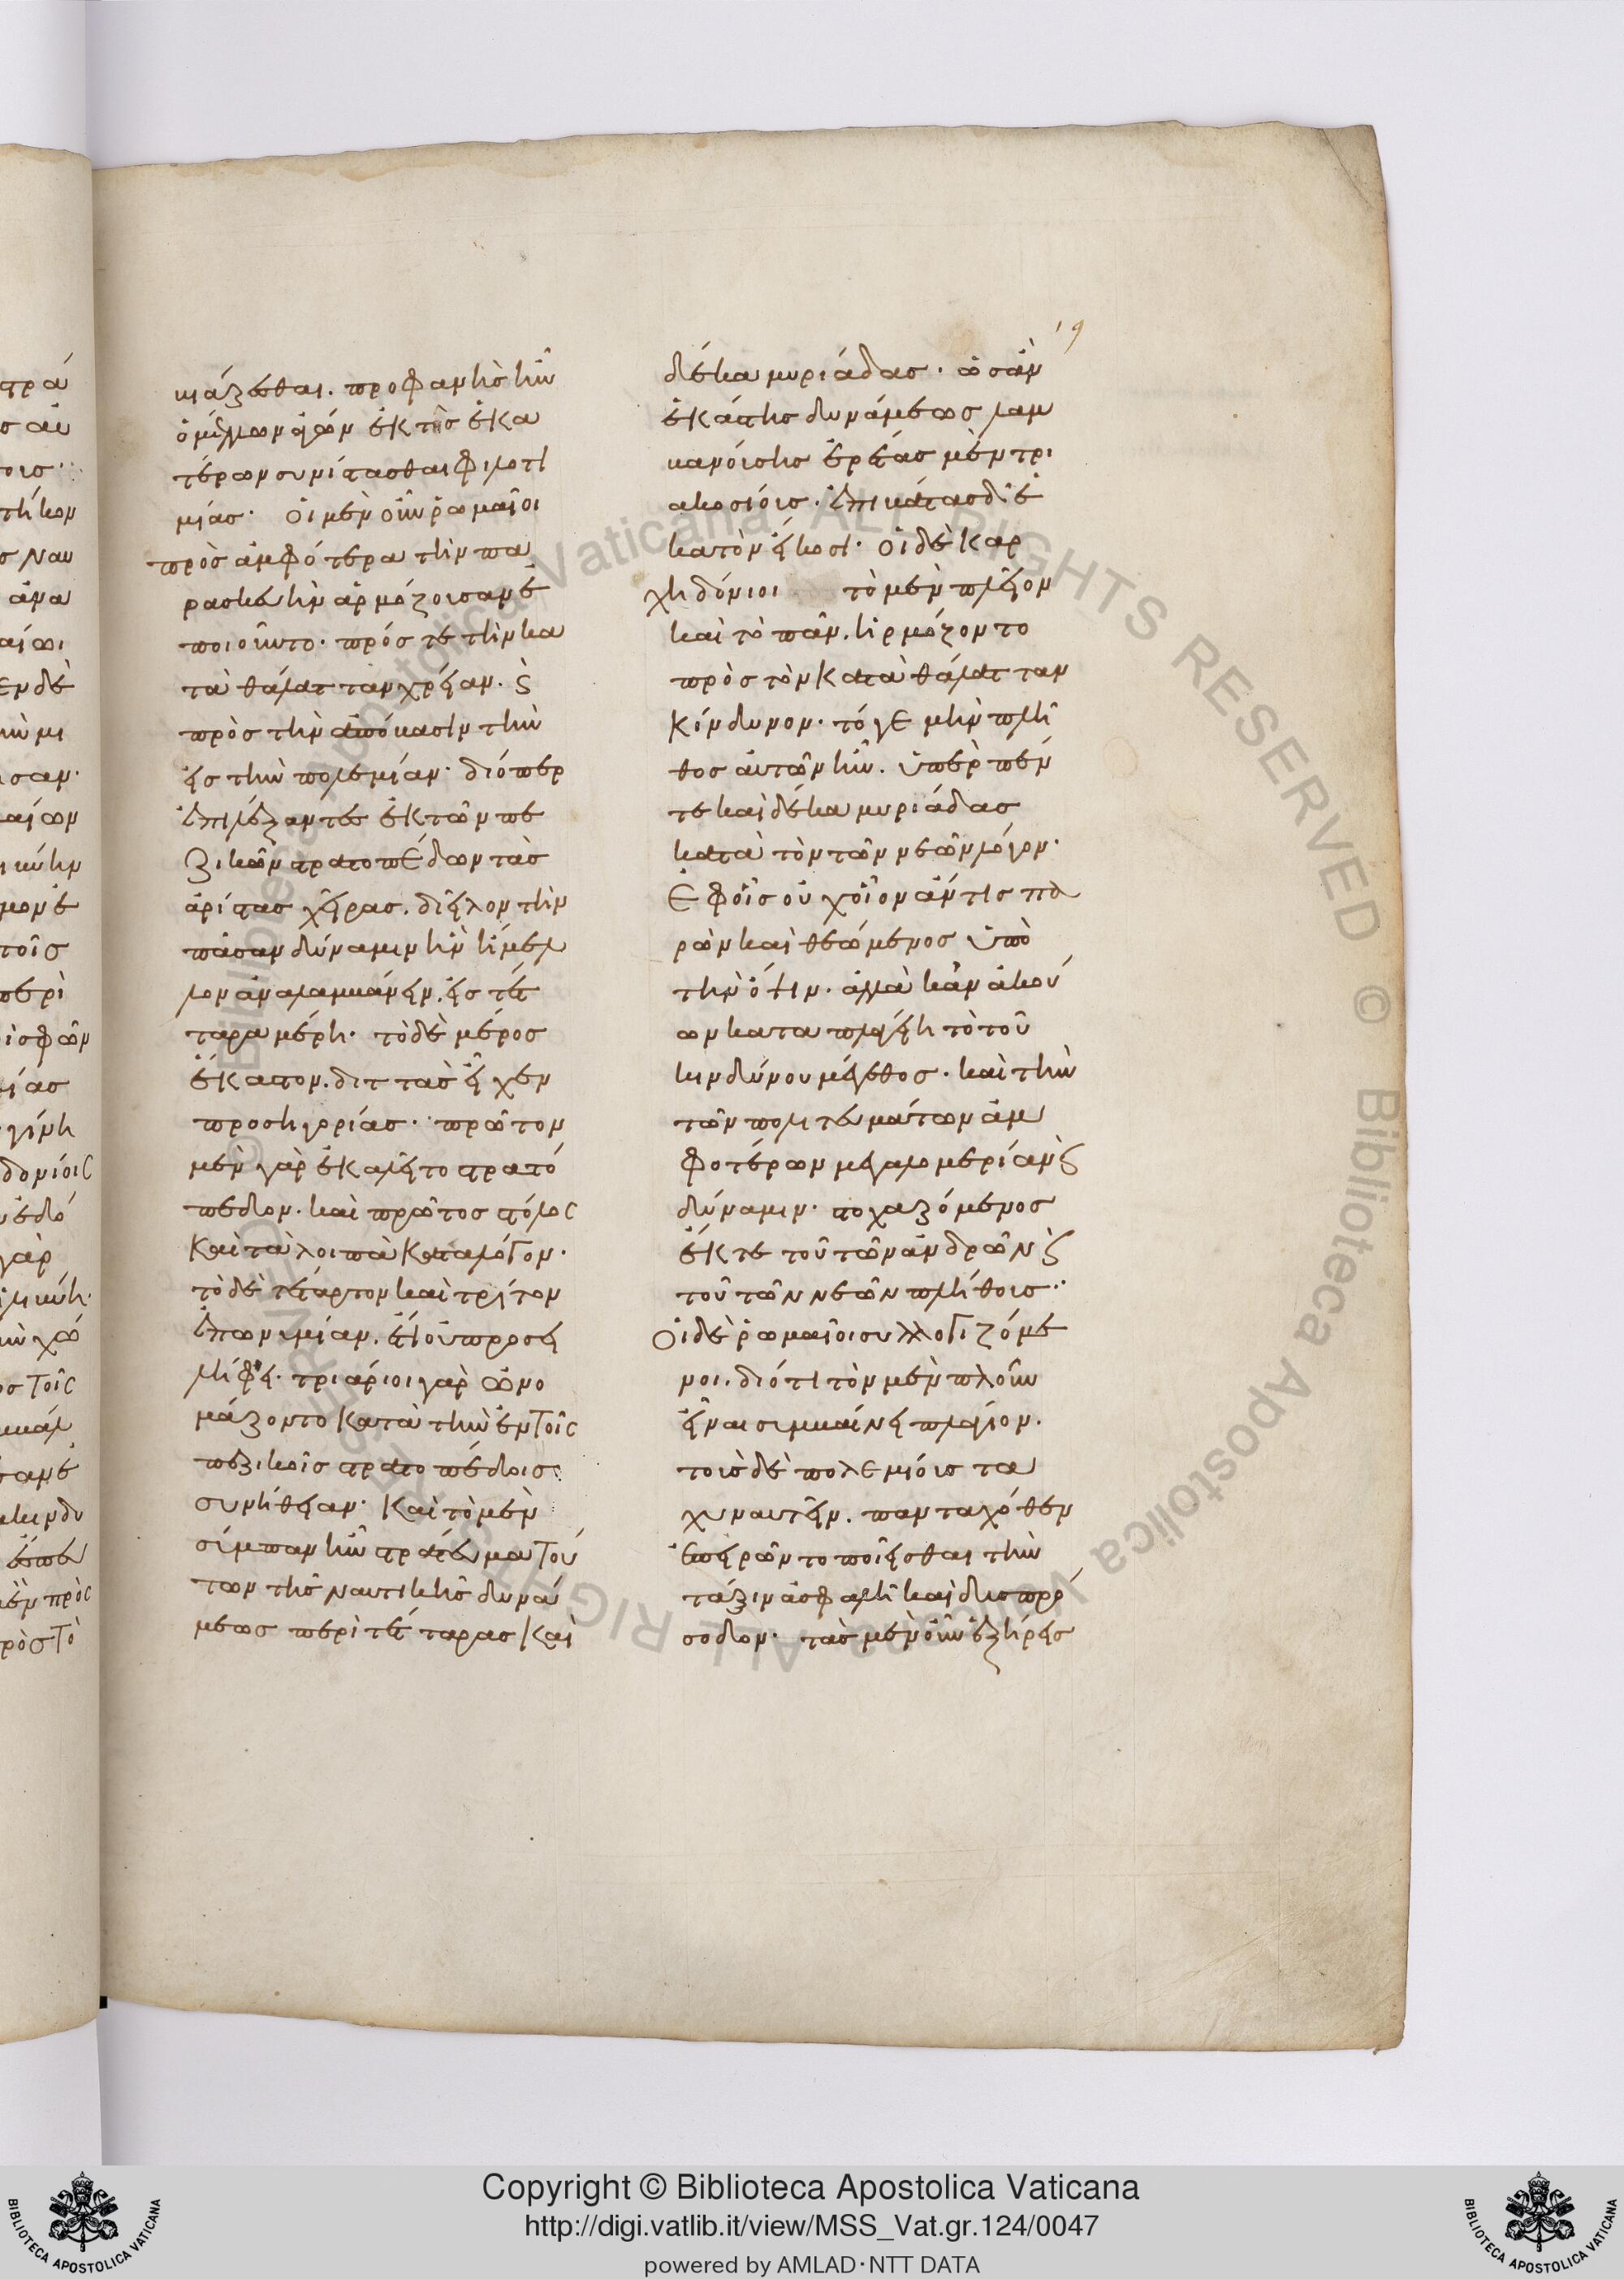 βιάζεσθαι. προφανὴς ἦν
ὁ μέλλων ἀγὼν ἐκ τῆς ἑκα
τέρων συνίστασθαι φιλοτι
μίας· οἱ μὲν οὖν ῥωμαῖοι
πρὸς ἀμφότερα τὴν πα
ρασκευὴν ἁρμόζουσαν ἐ
ποιοῦντο· πρός τε τὴν κα
τὰ θάλατταν χρείαν. ϛ
πρὸς τὴν ἀπόβασιν τὴν
εἰς τὴν πολεμίαν· διόπερ
ἐπιλέξαντες ἐκ τῶν πε
ζικῶν στρατοπέδων τὰς
ἀρίστας χεῖρας. διεῖλον τὴν
πᾶσαν δύναμιν ἣν ἤμελ
λον ἀναλαμβάνειν. εἰς τέτ
ταρα μέρη· τὸ δὲ μέρος
ἕκαστον. διττὰς εἶχεν
προσηγορίας· πρῶτον
μὲν γὰρ ἐκαλεῖτο στρατό
πεδον. καὶ πρῶτος στόλος
καὶ τὰ λοιπὰ κατὰ λόγον·
τὸ δὲ τέταρτον καὶ τρίτον
ἐπωνυμίαν. ἔτι οὐ προσεί
ληφει· τριάριοι γὰρ ὠνο
μάζοντο κατὰ τὴν ἐν τοῖς
πεζικοῖς στρατοπέδοις
συνήθειαν· καὶ τὸ μὲν
σύμπαν ἦν στράτευμα τού
των τῆς ναυτικῆς δυνά
μεως περὶ τέτταρας καὶ
19
δέκα μυριάδας. ὡς ἂν
ἑκάστης δυνάμεως λαμ
βανούσης ἐρέτας μὲν τρι
ακοσίους. ἐπιβάτας δ' ἑ
κατὸν εἴκοσι· οἱ δὲ καρ
χηδόνιοι τὸ μὲν πλεῖον
καὶ τὸ πᾶν. ἡρμόζοντο
πρὸς τὸν κατὰ θάλατταν
κίνδυνον· τό γε μὴν πλῆ
θος αὐτῶν ἦν. ὑπὲρ πέν
τε καὶ δέκα μυριάδας
κατὰ τὸν τῶν νεῶν λόγον·
ἐφ' οἷς οὐχ οἷον ἄν τις πα
ρὼν καὶ θεώμενος ὑπὸ
τὴν ὄψιν. ἀλλὰ κἂν ἀκού
ων καταπλαγείη τὸ τοῦ
κινδύνου μέγεθος. καὶ τὴν
τῶν πολιτευμάτων ἀμ
φοτέρων μεγαλομερίαν ϛ
δύναμιν· στοχαζόμενος
ἔκ τε τοῦ τῶν ἀνδρῶν ϛ
τοῦ τῶν νεῶν πλήθους·
οἱ δὲ ῥωμαῖοι συλλογιζόμε
νοι. διότι τὸν μὲν πλοῦν
εἶναι συμβαίνει πελάγιον.
τοὺς δὲ πολεμίους τα
χυναυτεῖν. πανταχόθεν
ἐπειρῶντο ποιεῖσθαι τὴν
τάξιν ἀσφαλῆ καὶ δυσπρό
σοδον· τὰς μὲν οὖν ἑξήρεις
Copyright © Biblioteca Apostolica Vaticana
http://digi.vatlib.it/view/MSS_Vat.gr.124/0047
powered by AMLAD·NTT DATA